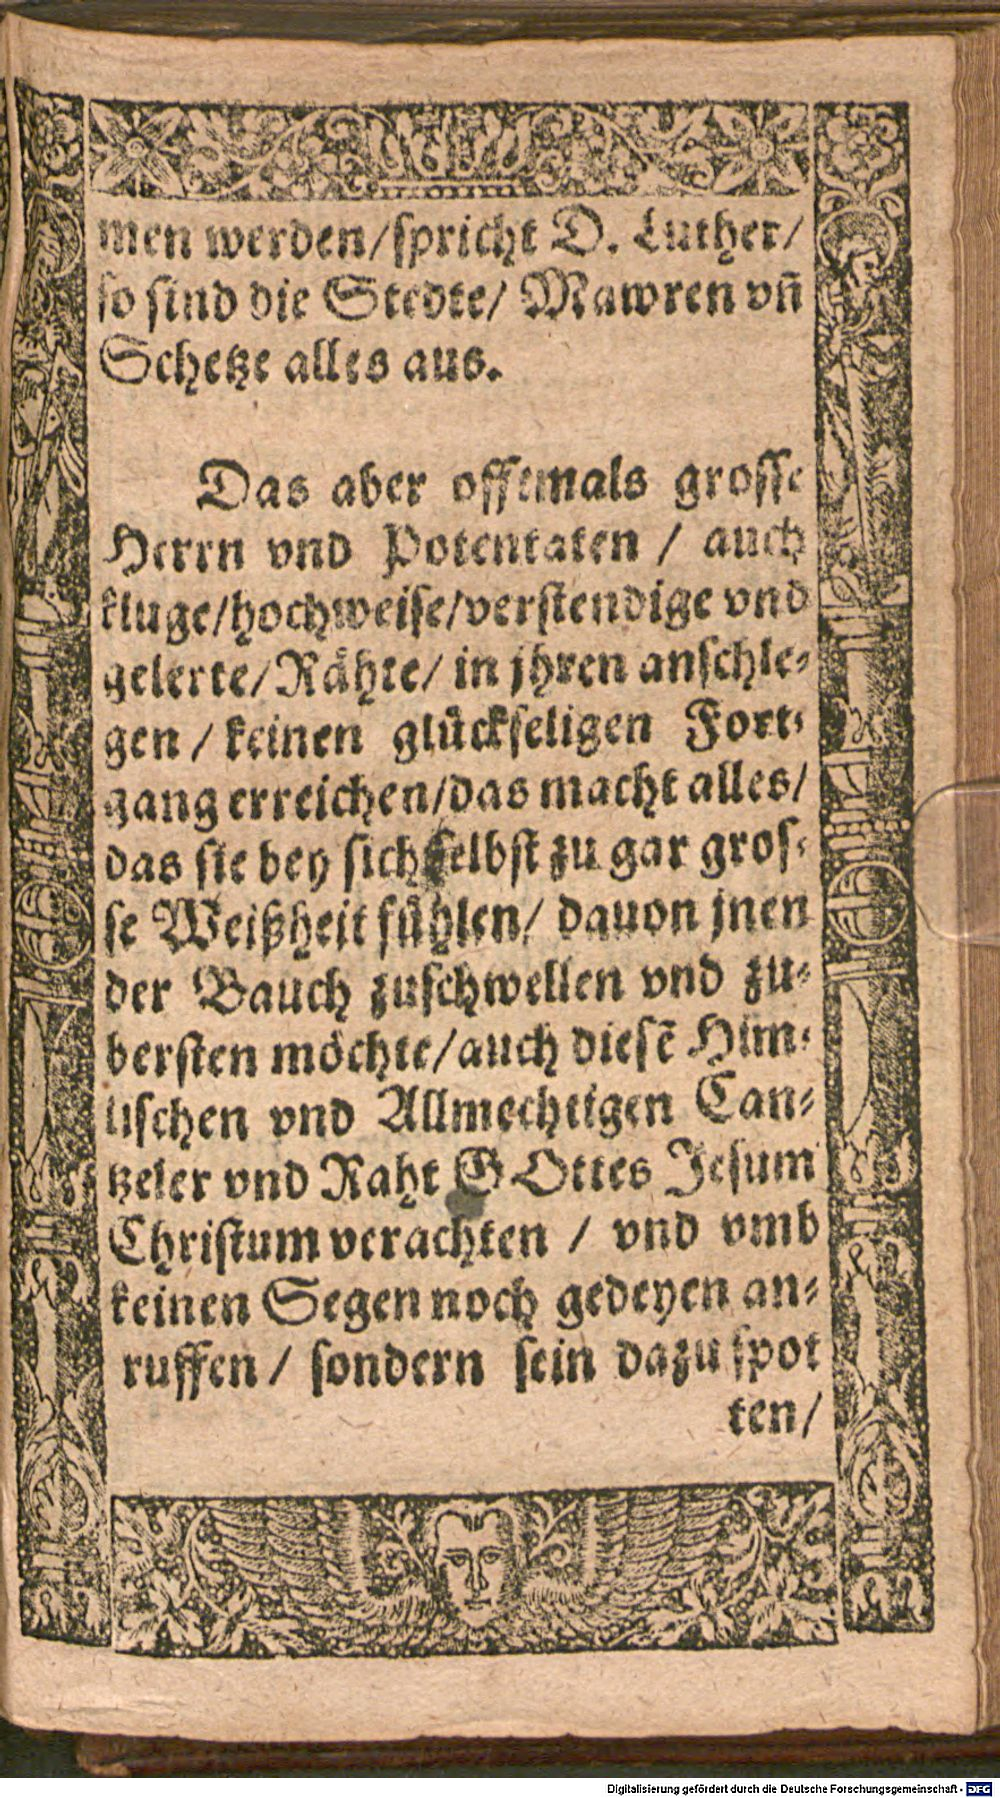 men werden/spricht D. Luther/
so sind die Stedte/ Mawren vn̄
Schetze alles aus.
Das aber offtmals grosse
Herrn vnd Potentaten / auch
kluge/hochweise/verstendige vnd
gelerte/Rähte/ in jhren anschle-
gen / keinen glückseligen Fort-
gang erreichen/das macht alles/
das sie bey sich selbst zu gar gros-
se Weißheit fühlen/ dauon jnen
der Bauch zuschwellen vnd zu-
bersten möchte/auch diesē Him-
lischen vnd Allmechtigen Can-
tzeler vnd Raht GOttes Jesum
Christum verachten / vnd vmb
keinen Segen noch gedeyen an-
ruffen / sondern sein dazu spot
ten/
Digitalisierung gefördert durch die Deutsche Forschungsgemeinschaft - DFG